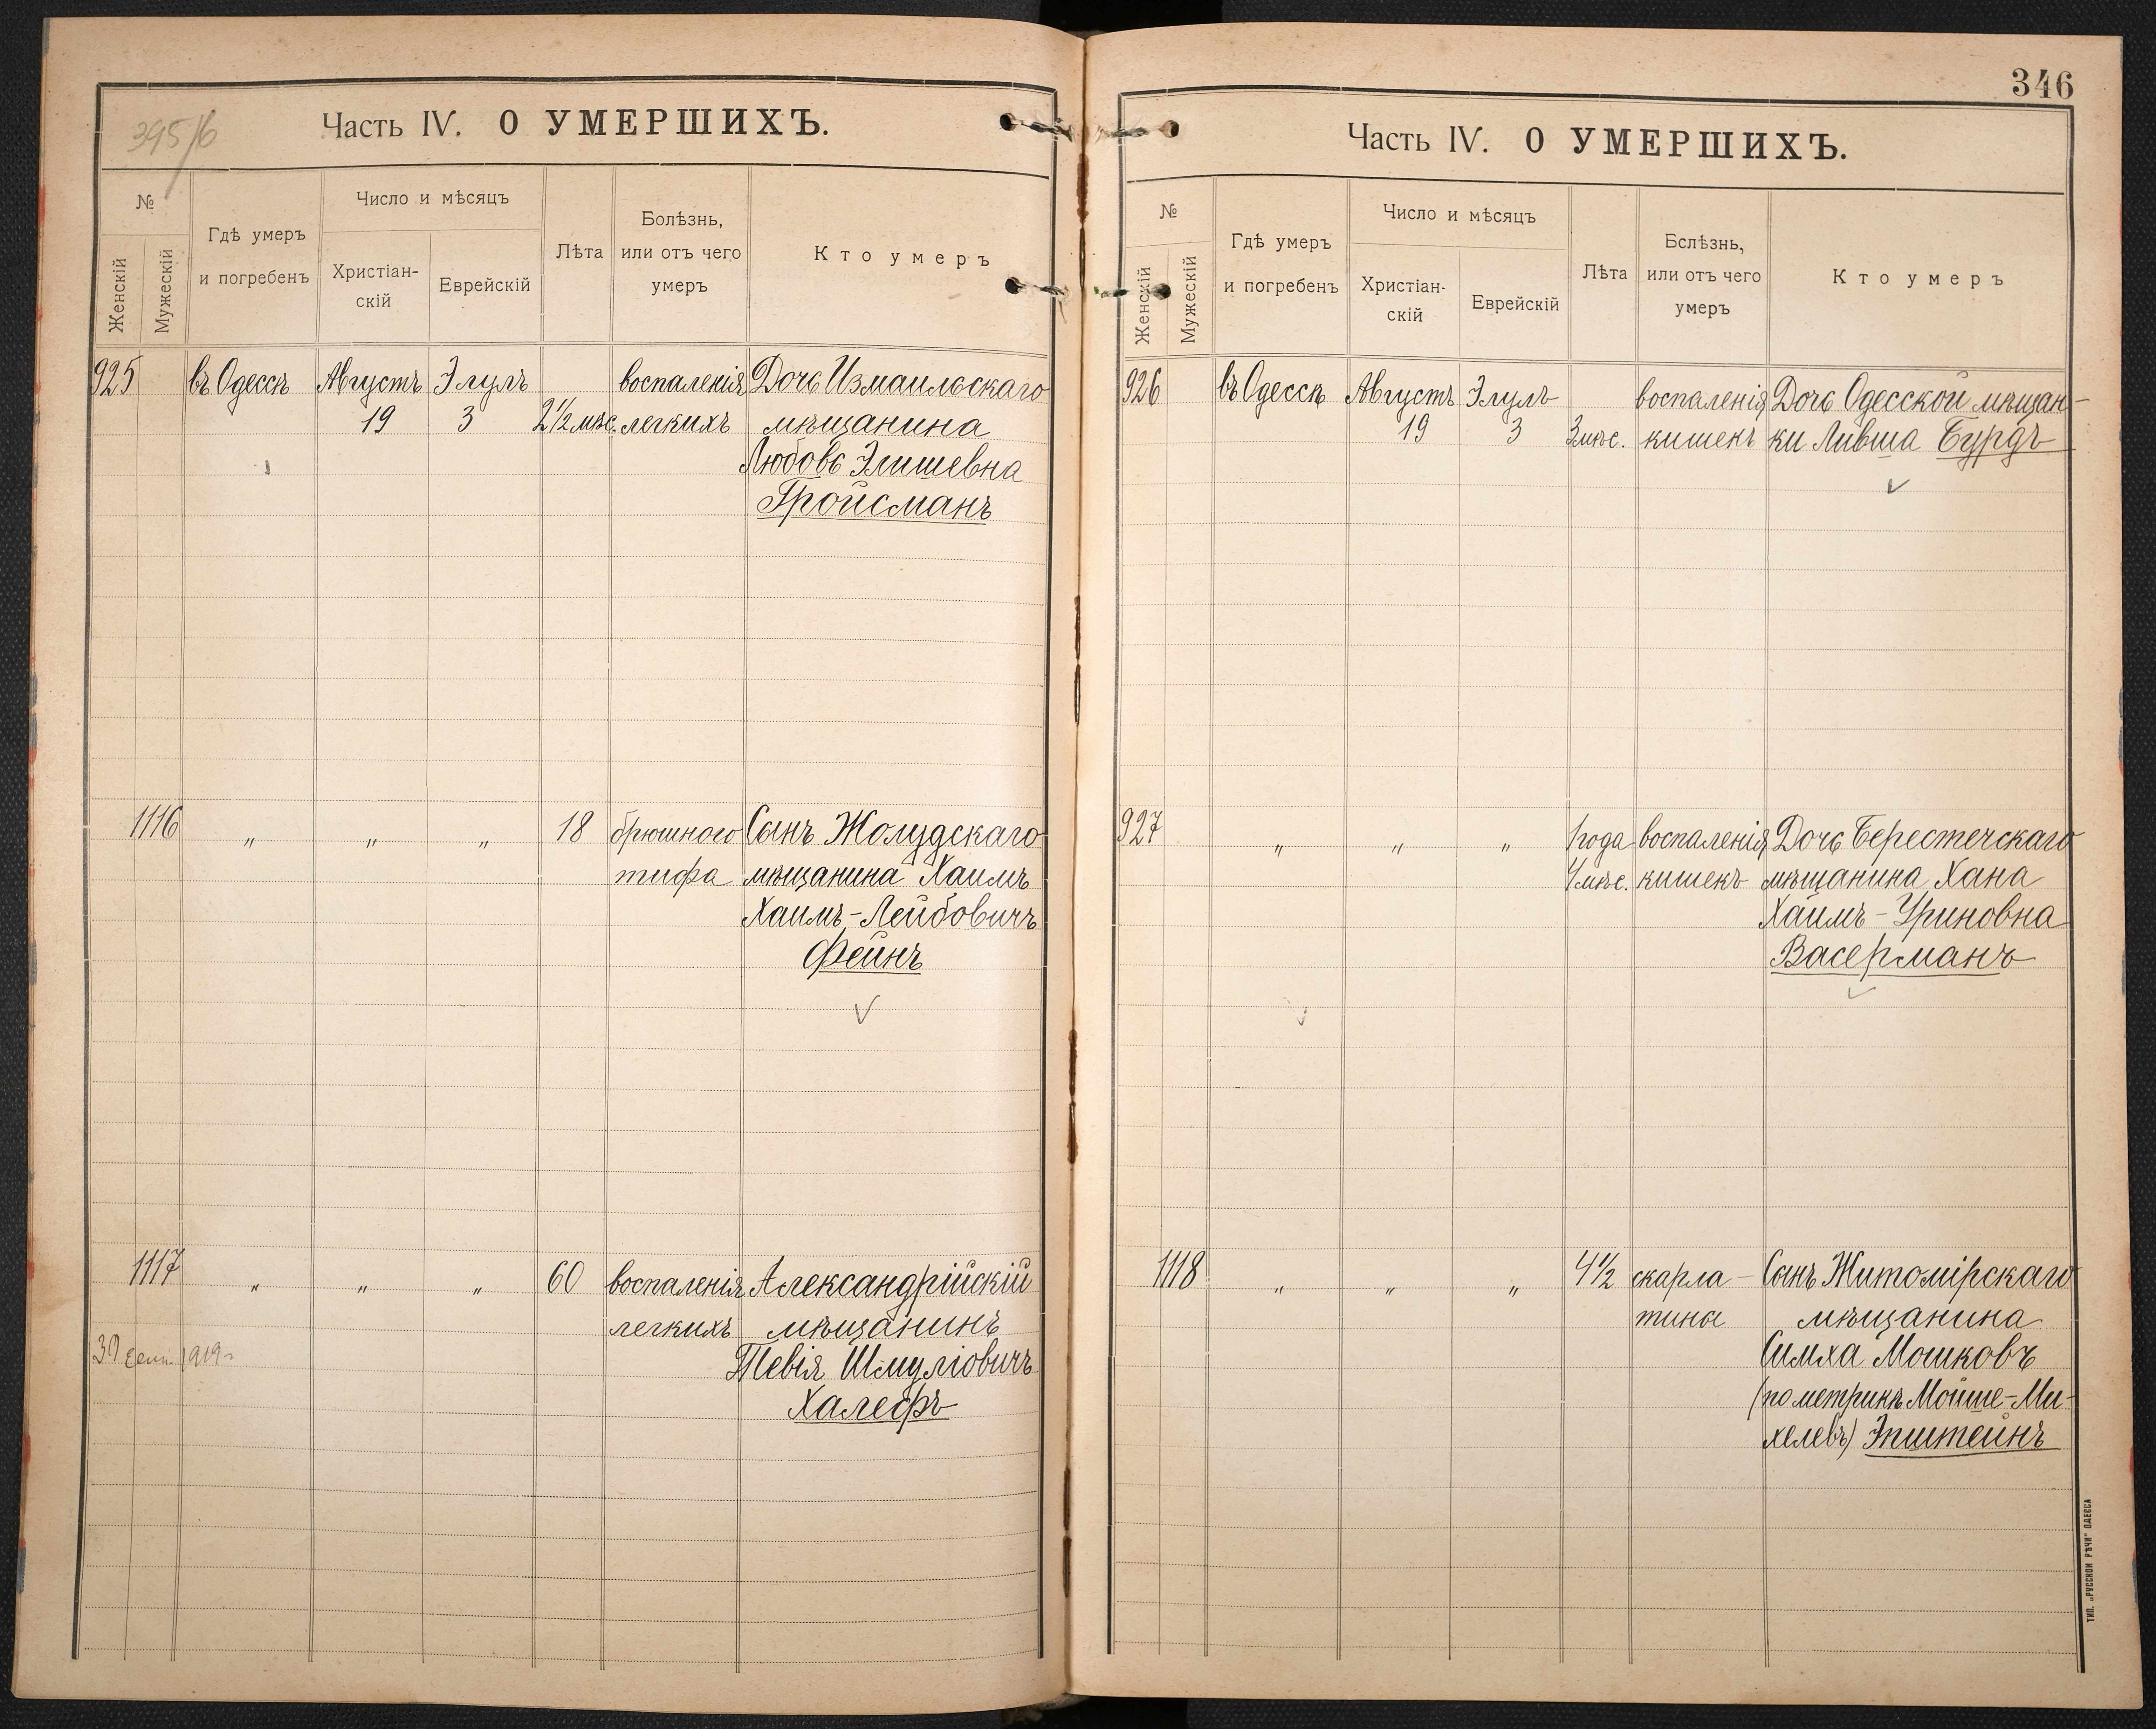 395/6
Часть IV. О УМЕРШИХЪ.
№
Женскій
Мужескій
Гдѣ умеръ
и погребенъ
Число и мѣсяцъ
Христіан-
скій
Еврейскій
Лѣта
Болѣзнь,
или отъ чего
умеръ
Кто умеръ
925 въ Одессѣ Августъ Элулъ воспаленія Дочь Измаильскаго
19 3 2½ мѣс. легкихъ мѣщанина
Любовь Элишевна
Гройсманъ
1116 „ „ „ 18 брюшного Сынъ Жолудскаго
тифа мѣщанина Хаимъ
Хаимъ-Лейбовичъ
Фейнъ
1117 „ „ „ 60 воспаленія Александрійскій
легкихъ мѣщанинъ
Тевія Шмуліовичъ
Халефъ
1919
346
Часть IV. О УМЕРШИХЪ.
№
Женскій
Мужескій
Гдѣ умеръ
и погребенъ
Число и мѣсяцъ
Христіан-
скій
Еврейскій
Лѣта
Бслѣзнь,
или отъ чего
умеръ
Кто умеръ
926 въ Одессѣ Августъ Элулъ воспаленія Дочь Одесской мѣщан-
19 3 3 мѣс. кишекъ ки Ливша Бурдъ
927 „ „ „ 1 года воспаленія Дочь Берестечскаго
1 мѣс. кишекъ мѣщанина Хана
Хаимъ-Уриновна
Васерманъ
1118 „ „ „ 4½ скарла- Сынъ Житомірскаго
тины мѣщанина
Симха Мошковъ
(по метрикѣ Мойше-Ми-
хелевъ) Эпштейнъ
ТИП. „РУССКОЙ РѢЧИ" ОДЕССА